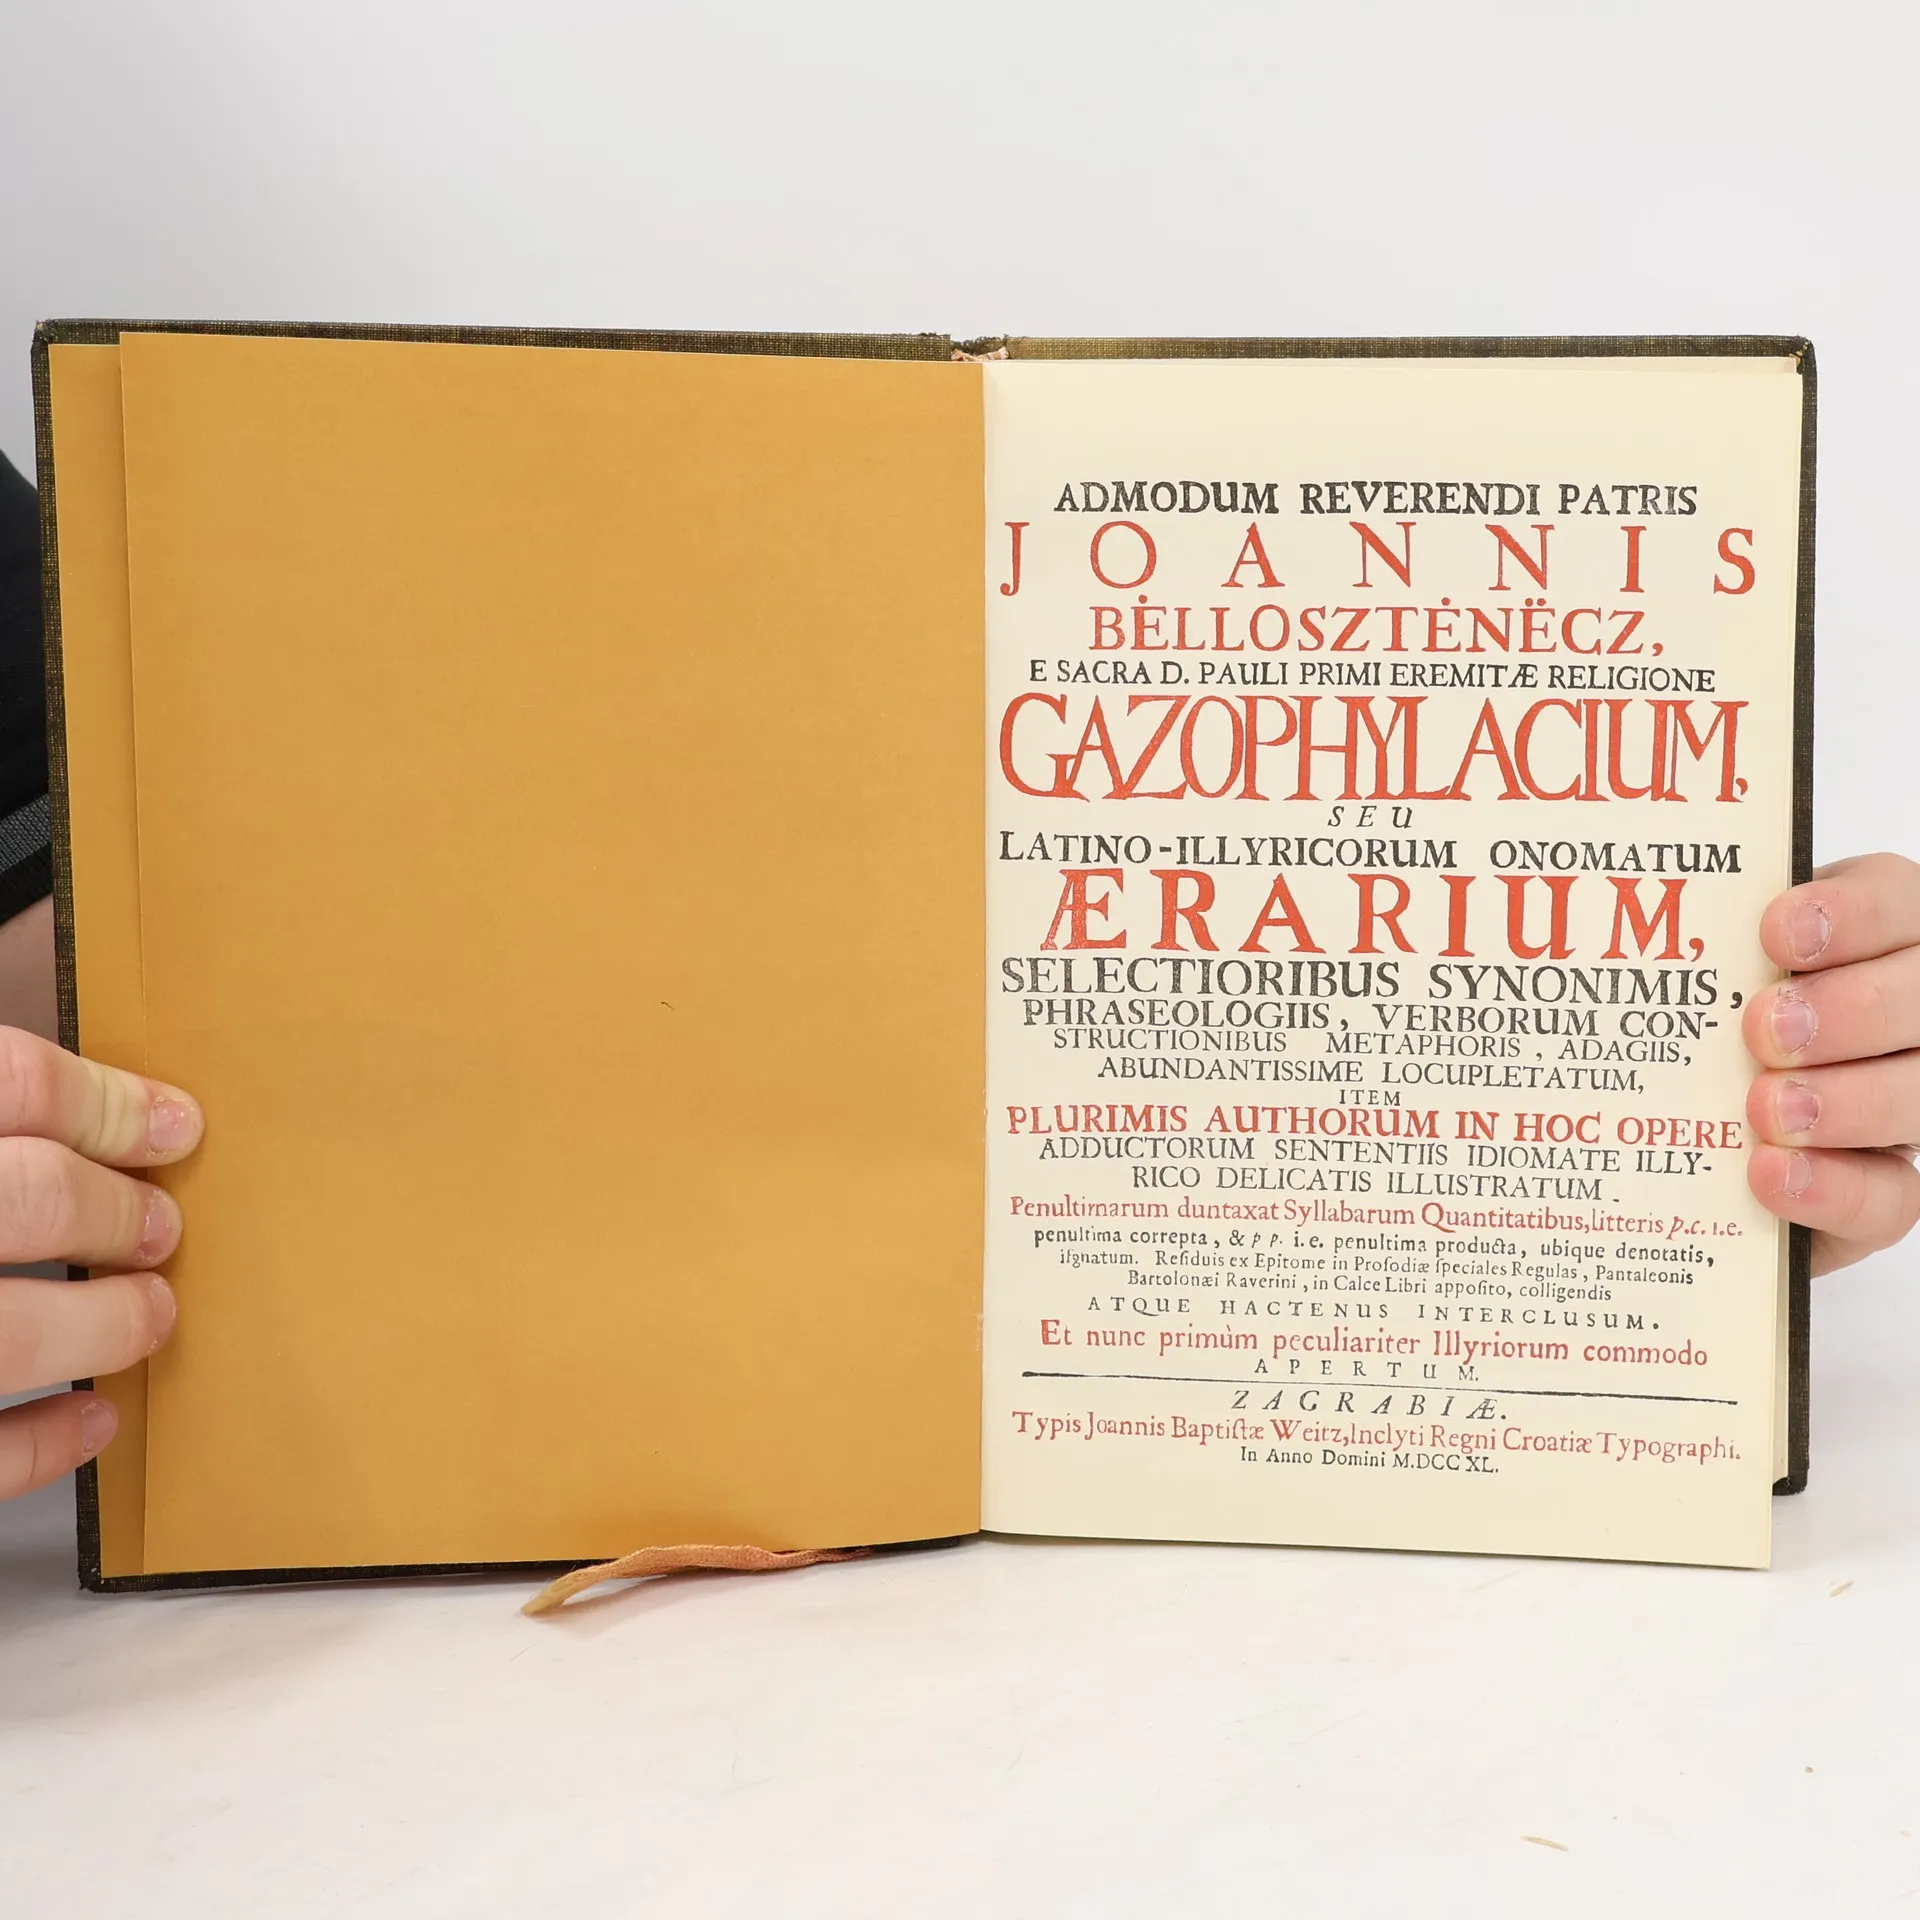 ADMODUM REVERENDI PATRIS
JOANNIS
BĖLLOSZTĖNËCZ,
E SACRA D. PAULI PRIMI EREMITÆ RELIGIONE
GAZOPHYLACIUM,
SEU
LATINO-ILLYRICORUM ONOMATUM
ÆRARIUM,
SELECTIORIBUS SYNONIMIS,
PHRASEOLOGIIS, VERBORUM CON-
STRUCTIONIBUS METAPHORIS, ADAGIIS,
ABUNDANTISSIME LOCUPLETATUM,
ITEM
PLURIMIS AUTHORUM IN HOC OPERE
ADDUCTORUM SENTENTIIS IDIOMATE ILLY-
RICO DELICATIS ILLUSTRATUM.
Penultimarum duntaxat Syllabarum Quantitatibus, litteris p.c. i.e.
penultima correpta, & p p. i.e. penultima producta, ubique denotatis,
iſgnatum. Reſiduis ex Epitome in Proſodiæ ſpeciales Regulas, Pantaleonis
Bartolonæi Raverini, in Calce Libri appoſito, colligendis
ATQUE HACTENUS INTERCLUSUM.
Et nunc primùm peculiariter Illyriorum commodo
APERTUM.
ZAGRABIÆ.
Typis Joannis Baptiſtæ Weitz, Inclyti Regni Croatiæ Typographi.
In Anno Domini M.DCC XL.